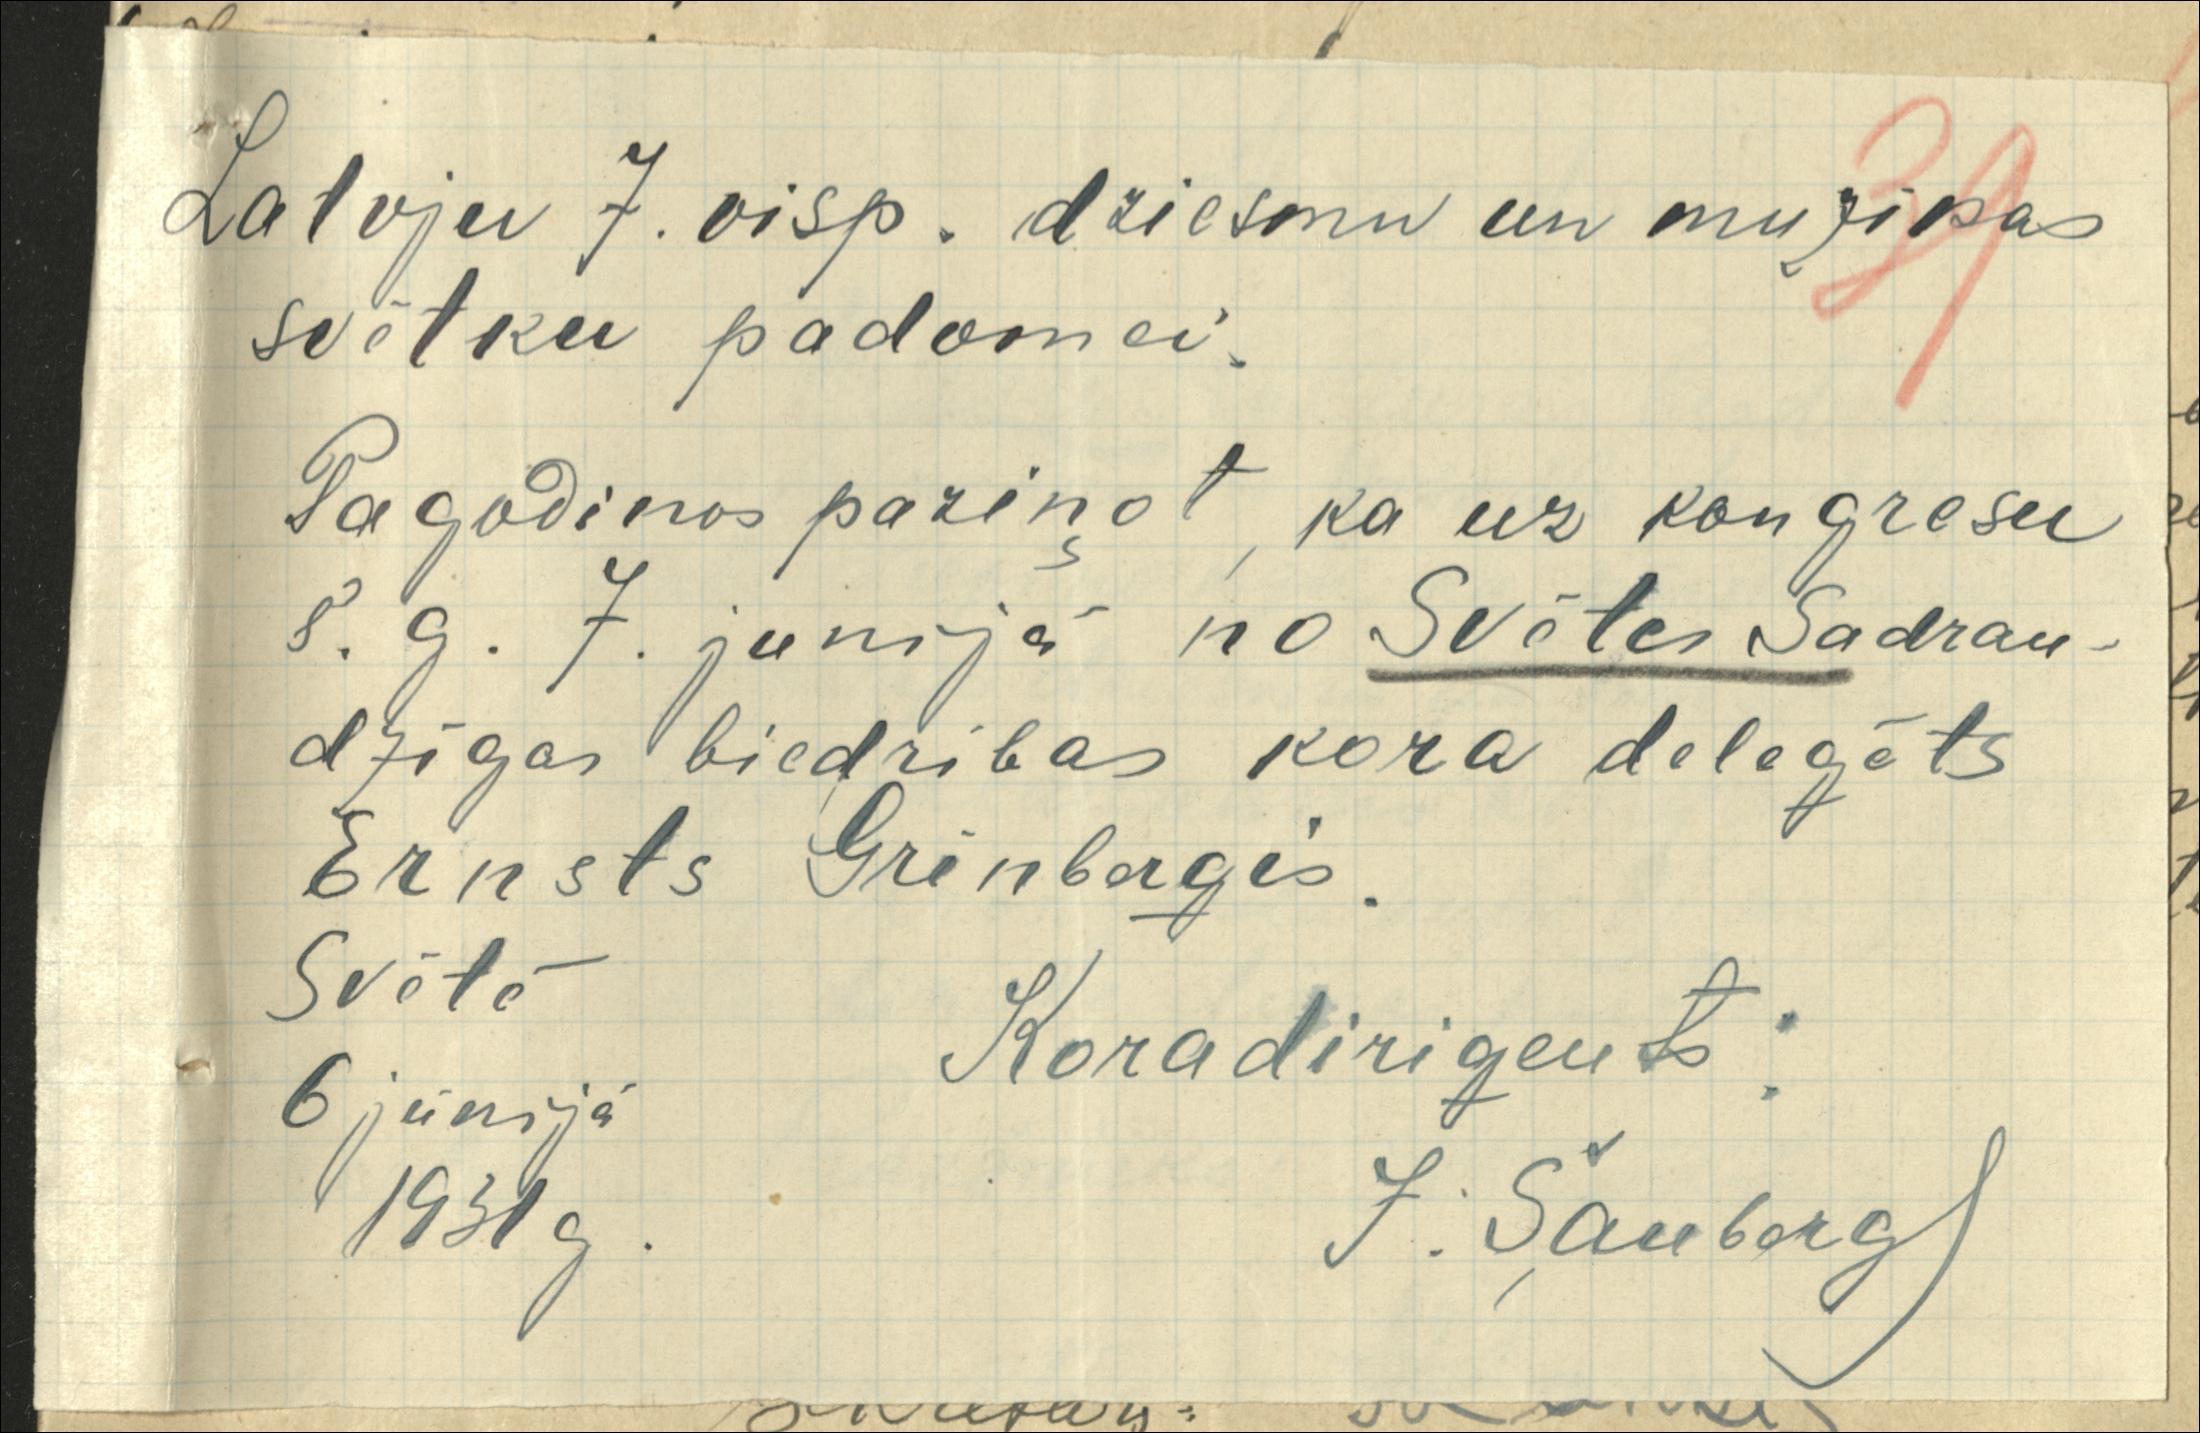 Latvju 7. visp. dziesmu un muzikas
39
svētku padomei.
Pagodinos paziņot, ka uz kongresu
š. g. 7. junijā no Svētes Sadrau-
dzīgas biedribas kora delegāts
Ernsts Grinbergis.
Svētē
6 jūnijā
1931 g.
Koradirigents:
J. Šauberg